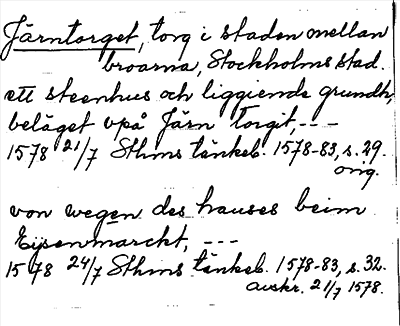 Järntorget, torg i staden mellan
broarna, Stockholms stad.
ett steenhus och liggiende grundh,
beläget vpå Järn Torgit, ---
1578 21/7 Sthms tänkeb. 1578-83, s. 29.
orig.
von wegen des hauses beim
Eysenmarckt, ---
1578 24/7 Sthms tänkeb. 1578-83, s. 32.
avskr. 21/7 1578.